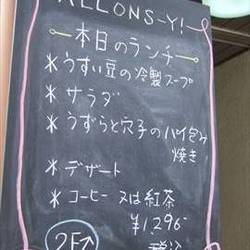 ALLONS-Y!
本日のランチ
* うすい豆の冷製スープ
* サラダ
* うずらと穴子のパイ包み
焼き
* デザート
* コーヒー 又は紅茶
¥1,296-
2F↑
税込